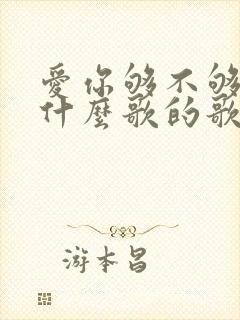 愛你够不够
什麼歌的歌
游本昌